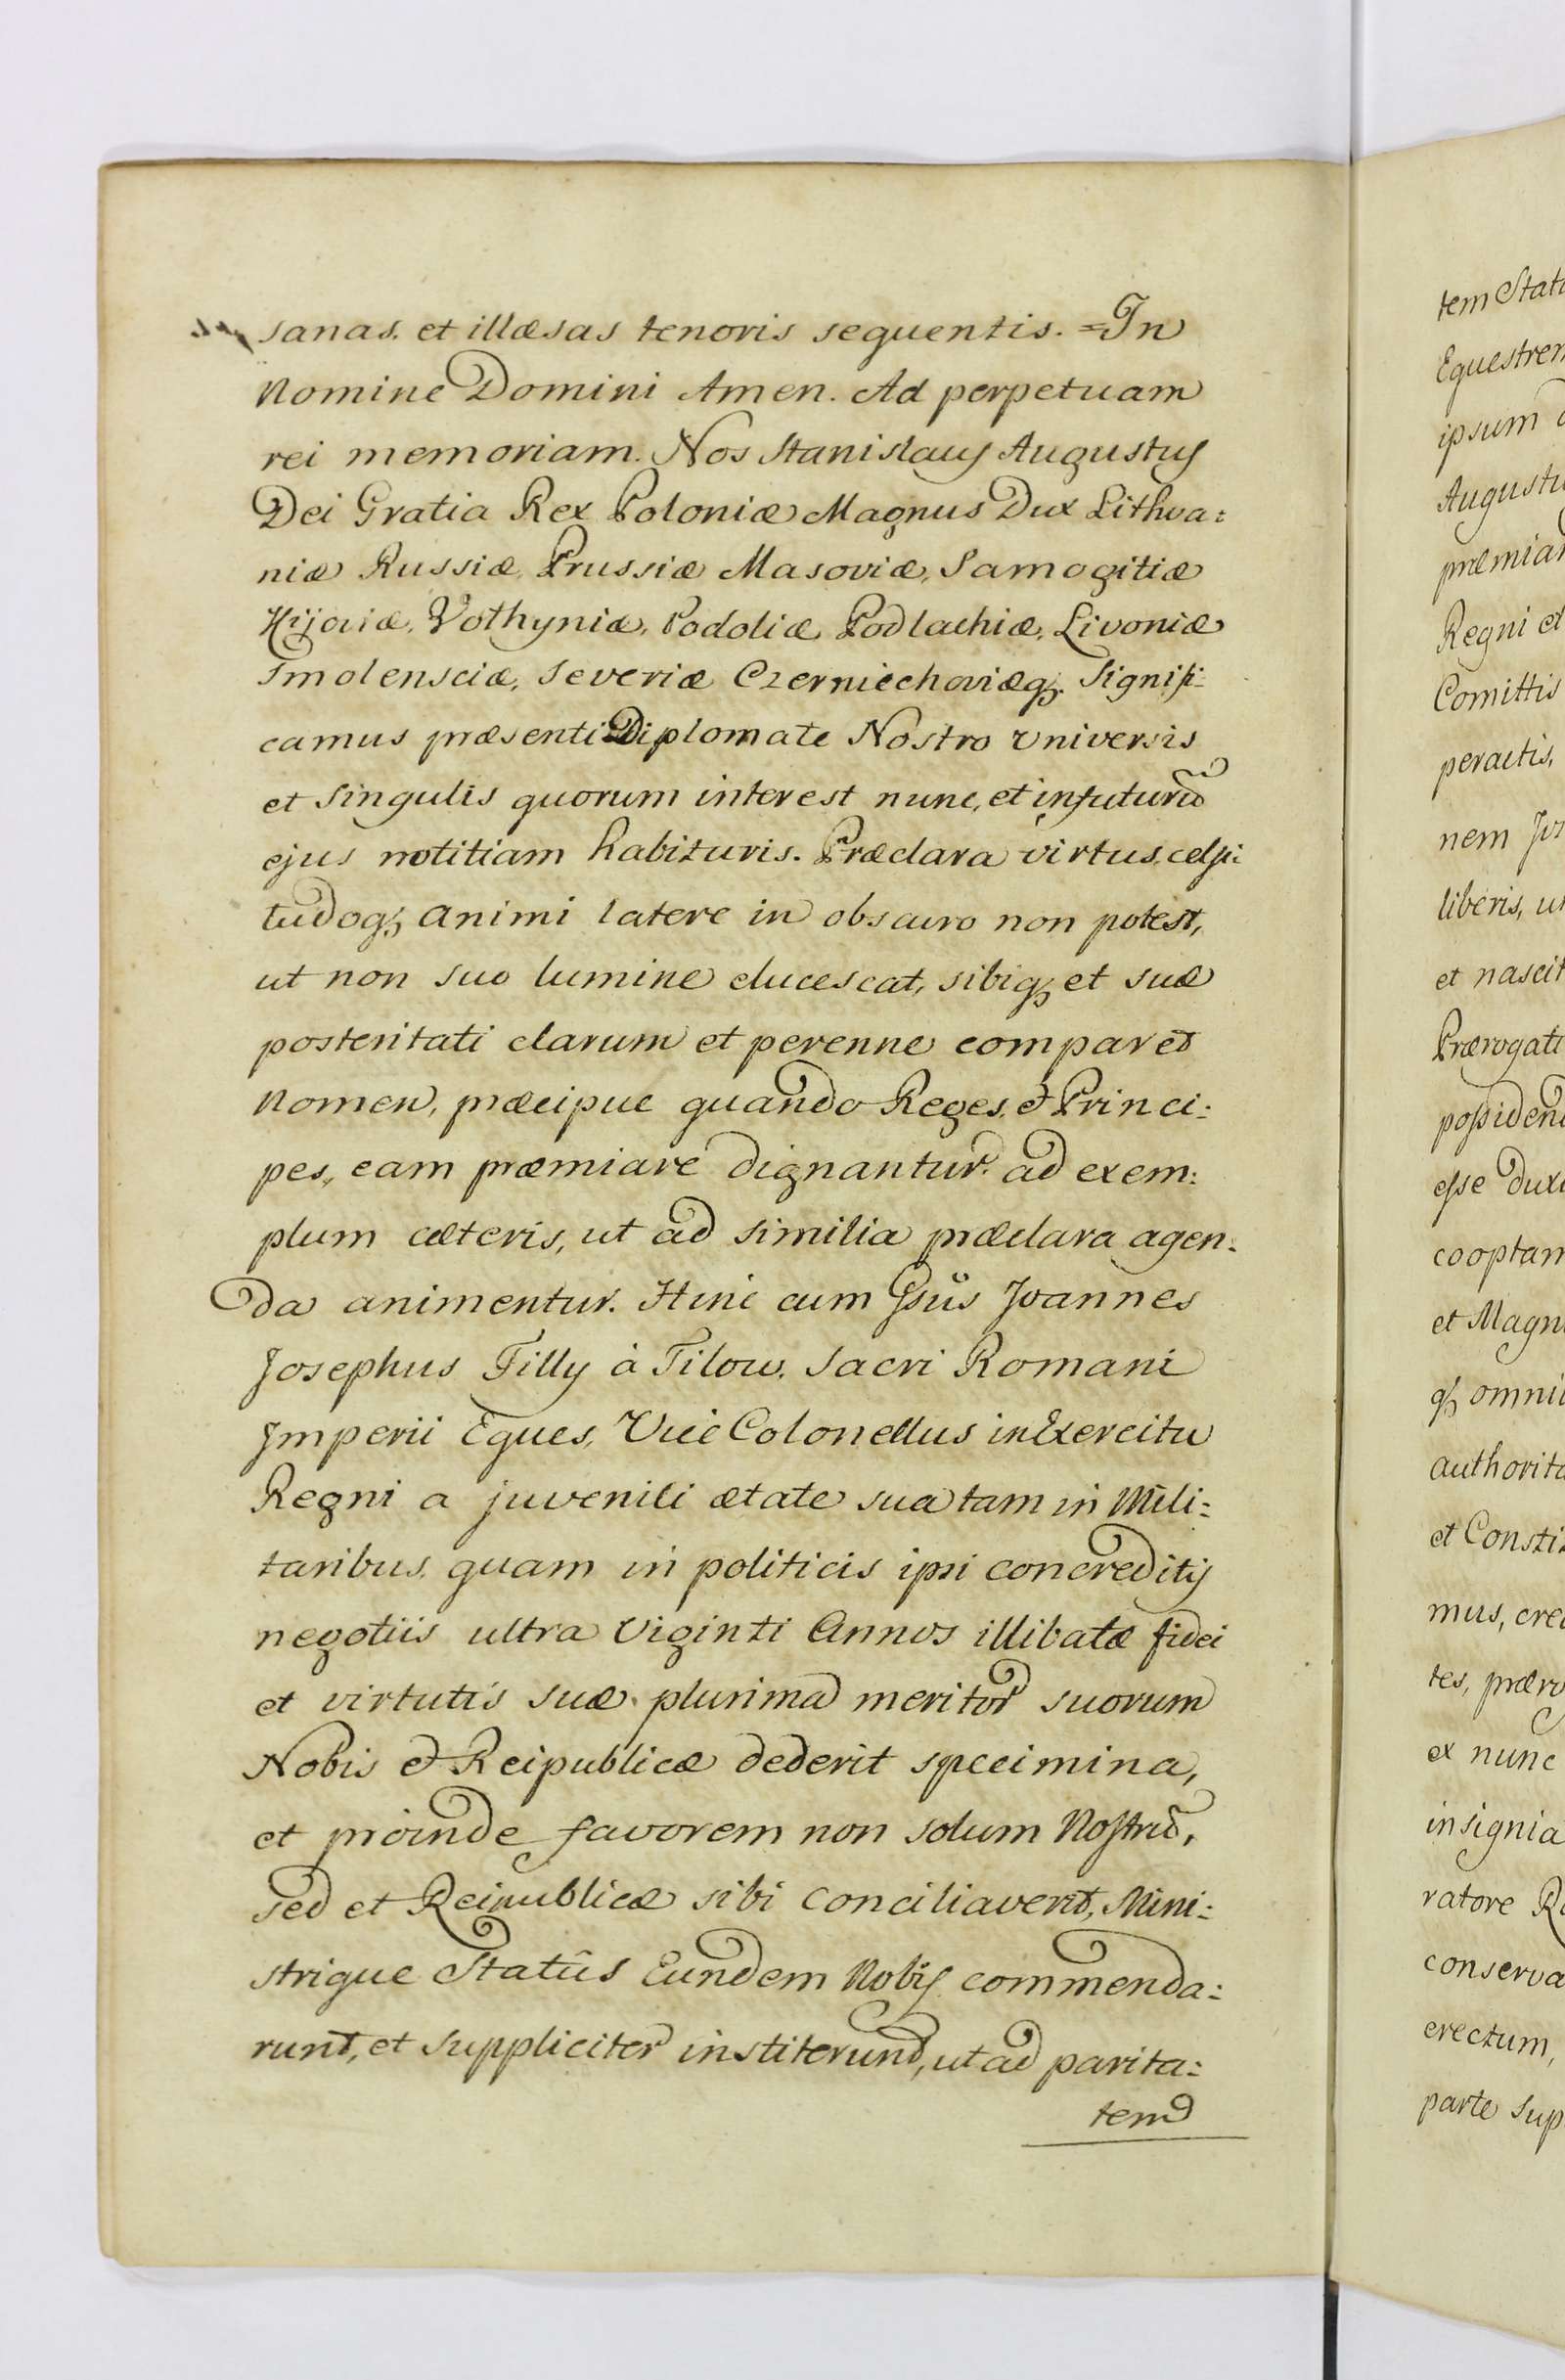 sanas, et illæsas tenoris sequentis. =In
Nomine Domini Amen. Ad perpetuam
rei memoriam. Nos Stanislaus Augustus
Dei Gratia Rex Poloniæ Magnus Dux Lithva:
niæ Russiæ, Prussiæ Masoviæ, Samogitiæ
Kijoviæ, Volhyniæ, Podoliæ Podlachiæ, Livoniæ
Smolensciæ, Severiæ Czerniechoviæq3. Signifi:
camus præsenti Diplomate Nostro universis
et singulis quorum interest nunc, et in futurũ
ejus notitiam habituris. Præclara virtus, celsi:
tudoq3 animi latere in obscuro non potest,
ut non suo lumine elucescat, sibiq3 et suæ
posteritati clarum et perenne comparet
Nomen, præcipue quando Reges, et Princi:
pes, eam præmiare dignantur ad exem:
plum cæteris, ut ad similia præclara agen:
da animentur. Hinc cum Gsus Joannes
Josephus Tilly à Tilow, Sacri Romani
Imperii Eques, Vice Colonellus in Exercitu
Regni a juvenili ætate sua tam in Mili:
taribus, quam in politicis ipsi concreditis
negotiis ultra Viginti Annos illibatæ fidei
et virtutis suæ plurima meritor suorum
Nobis et Reipublicæ dederit specimina,
et proinde favorem non solum Nostrũ,
sed et Reipublicæ sibi conciliaverit, Mini:
strique Statûs Eundem Nobis commenda:
runt, et suppliciter institerunt, ut ad parita:
tem
tem
ipsum
Regni et
Comittis
peractis,
nem
liberis,
et
esse
et
omni
et
mus,
tes,
ex nunc
insignia
ratore
erectum,
parte